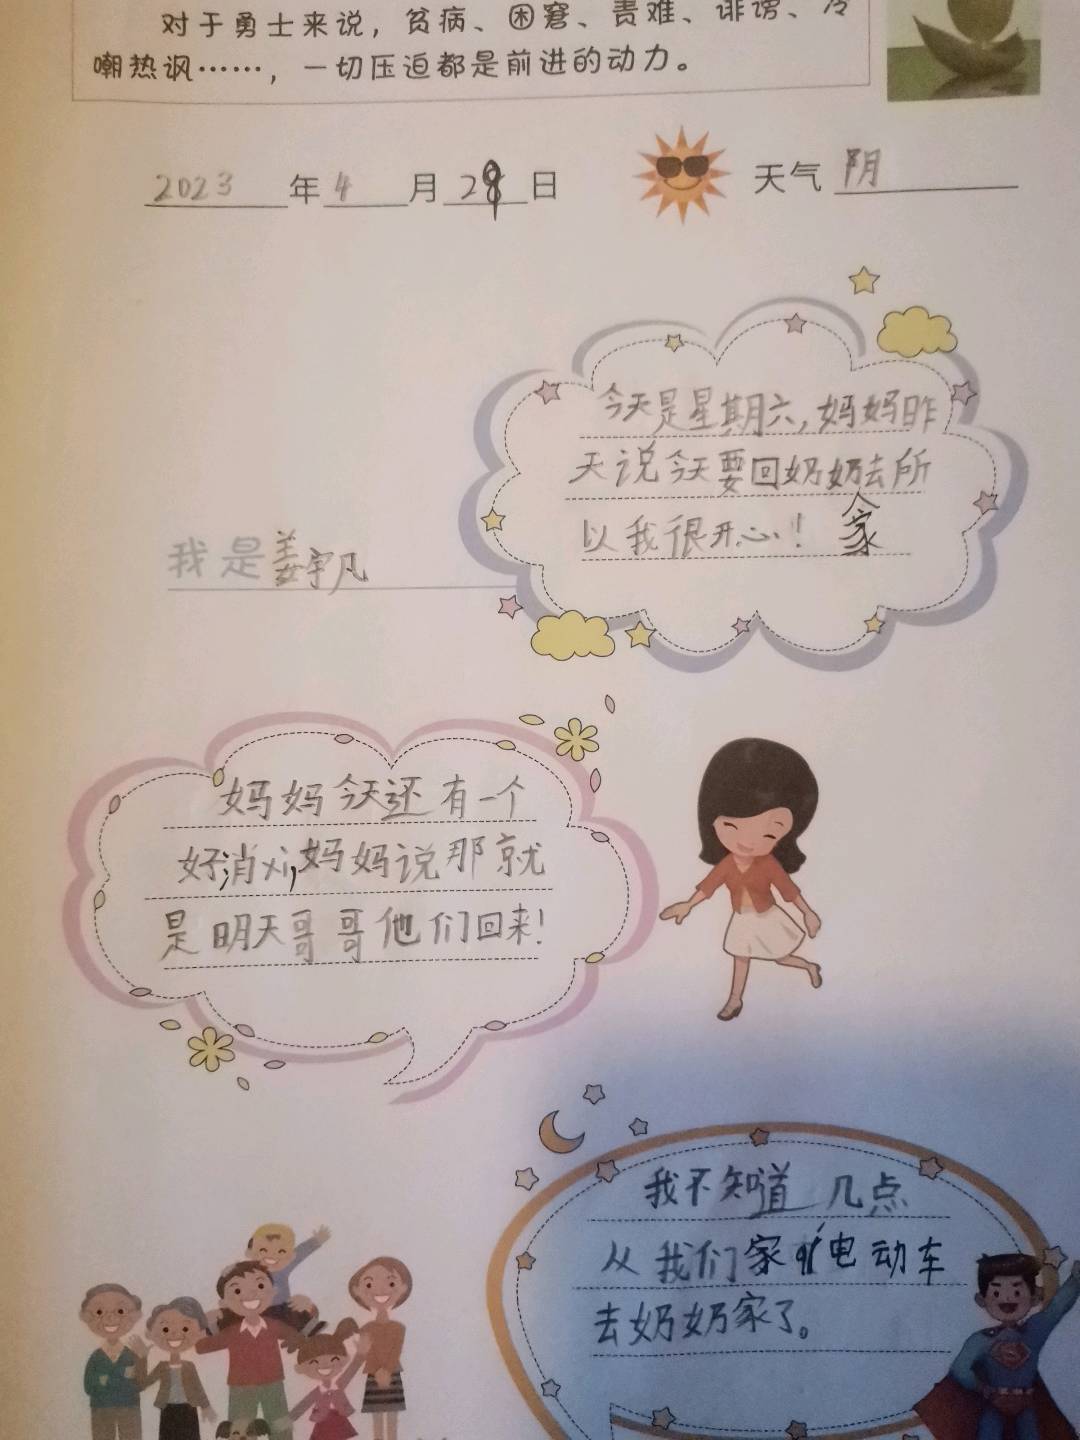 对于勇士来说，贫病、困窘、责难、诽谤、冷
嘲热讽……，一切压迫都是前进的动力。
2023年4月29日
天气 阴
今天是星期六，妈妈昨
天说今天要回奶奶去所
以我很开心！家
我是姜宇凡
妈妈今天还有一个
好消xi，妈妈说那就
是明天哥哥他们回来！
我不知道几点
从我们家qí电动车
去奶奶家了。